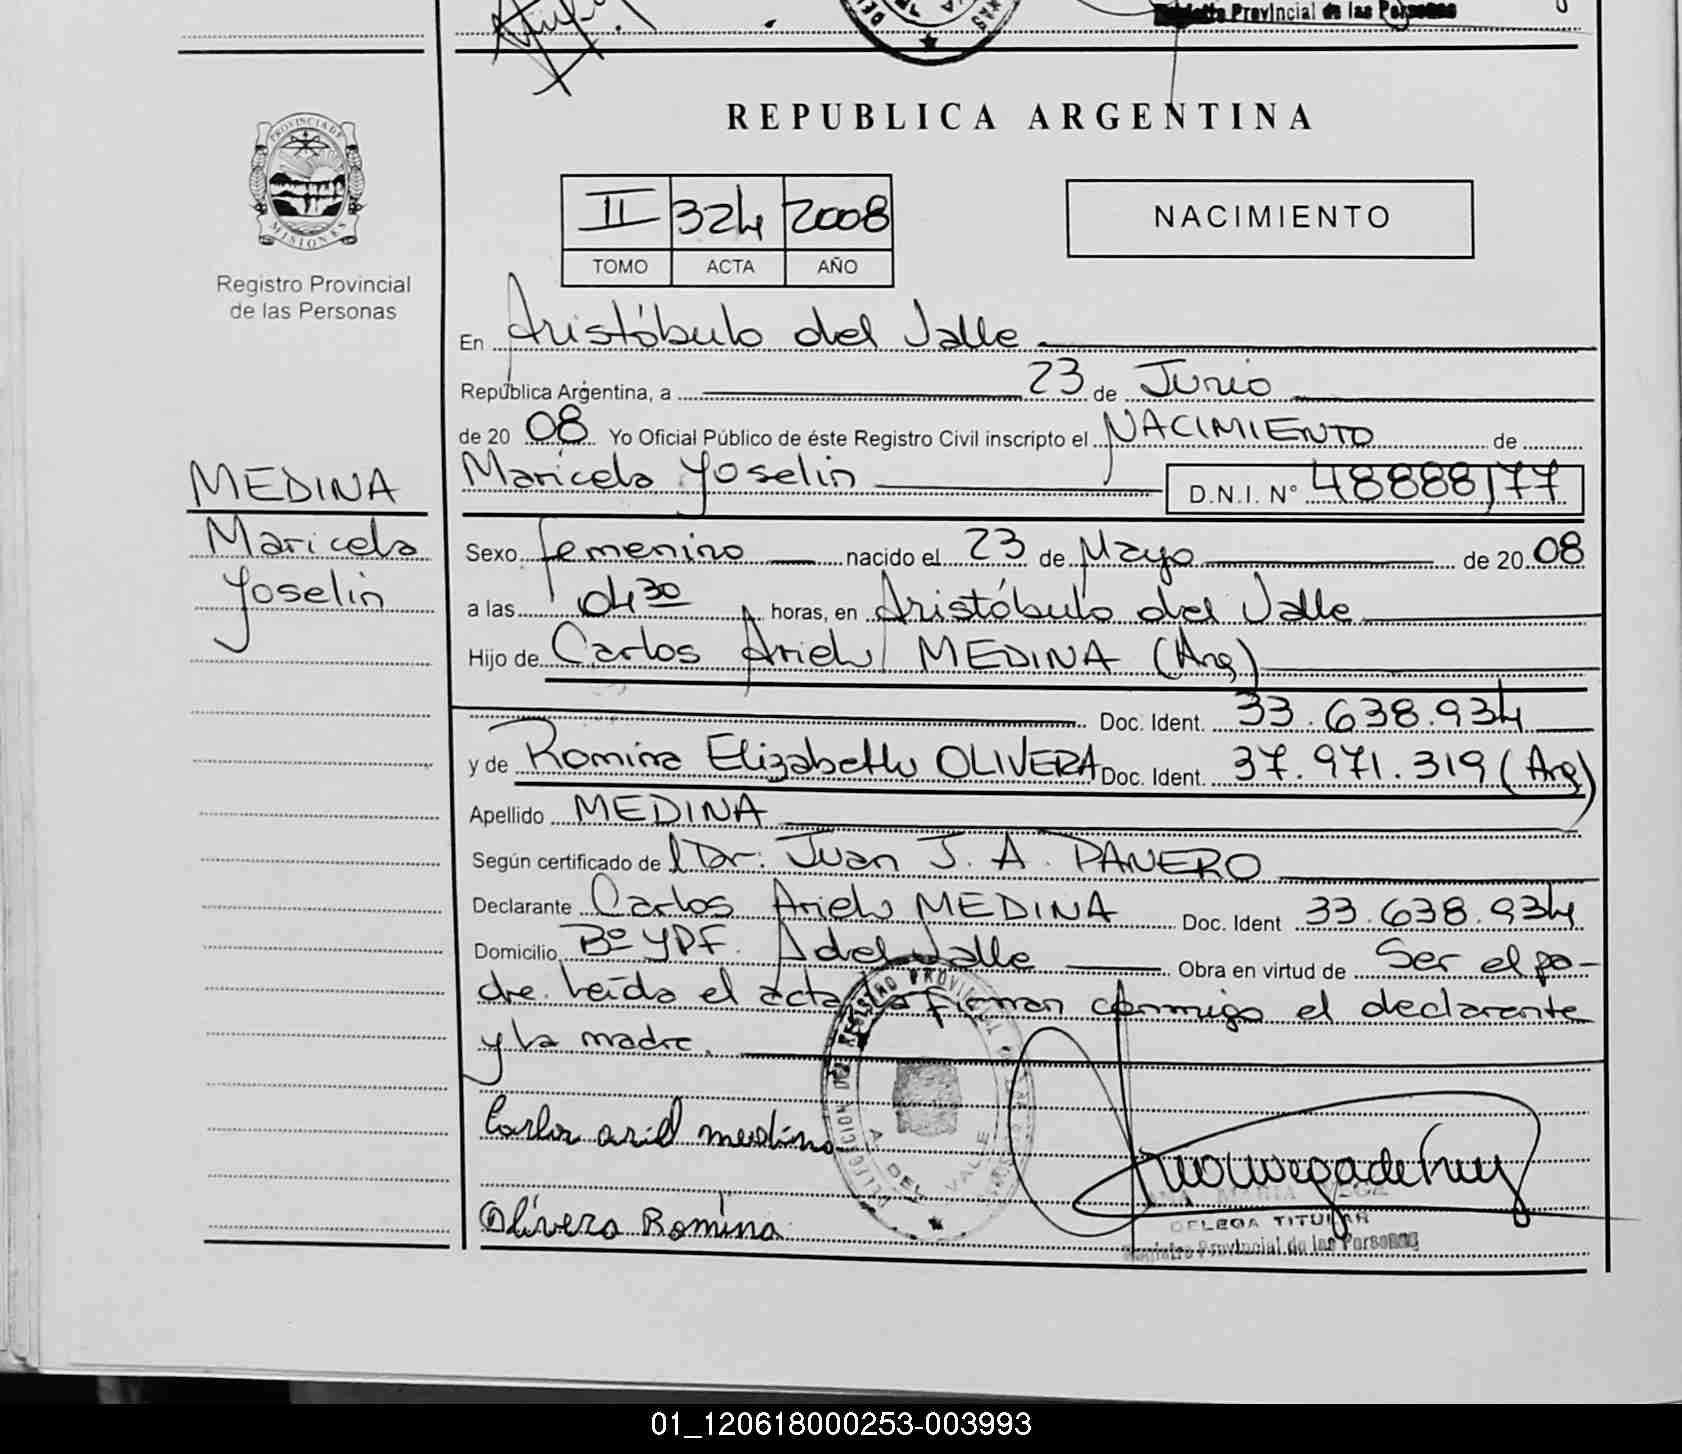 Registro Provincial de las Personas
REPUBLICA ARGENTINA
PROVINCIA DE
MISIONES
Registro Provincial
de las Personas
II 324 2008
TOMO ACTA AÑO
NACIMIENTO
En Aristóbulo del Valle
República Argentina, a 23 de Junio
de 20 08 Yo Oficial Público de éste Registro Civil inscripto el NACIMIENTO de
Maricela Yoselin D.N.I. N° 48888177
MEDINA
Maricela
Yoselin
Sexo femenino nacido el 23 de Mayo de 20 08
a las 04 30 horas, en Aristóbulo del Valle
Hijo de Carlos Ariel MEDINA (Arg)
Doc. Ident. 33.638.934
y de Romina Elizabeth OLIVERA Doc. Ident. 37.971.319 (Arg)
Apellido MEDINA
Según certificado de l Dr. Juan J. A. PANERO
Declarante Carlos Ariel MEDINA Doc. Ident 33.638.934
Domicilio Bº YPF. A del Valle Obra en virtud de Ser el pa-
dre. Leída el acta la firman conmigo el declarante
y la madre.
Carlos ariel medina
Olivera Romina
A DEL VALLE
DELEGA TITULAR
Registro Provincial de las Personas
01_120618000253-003993